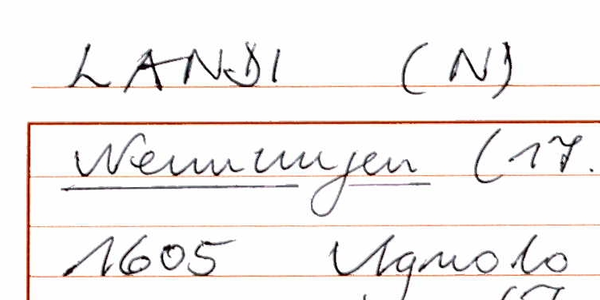 LANDI (N)
Nennungen (17.
1605 Agnolo